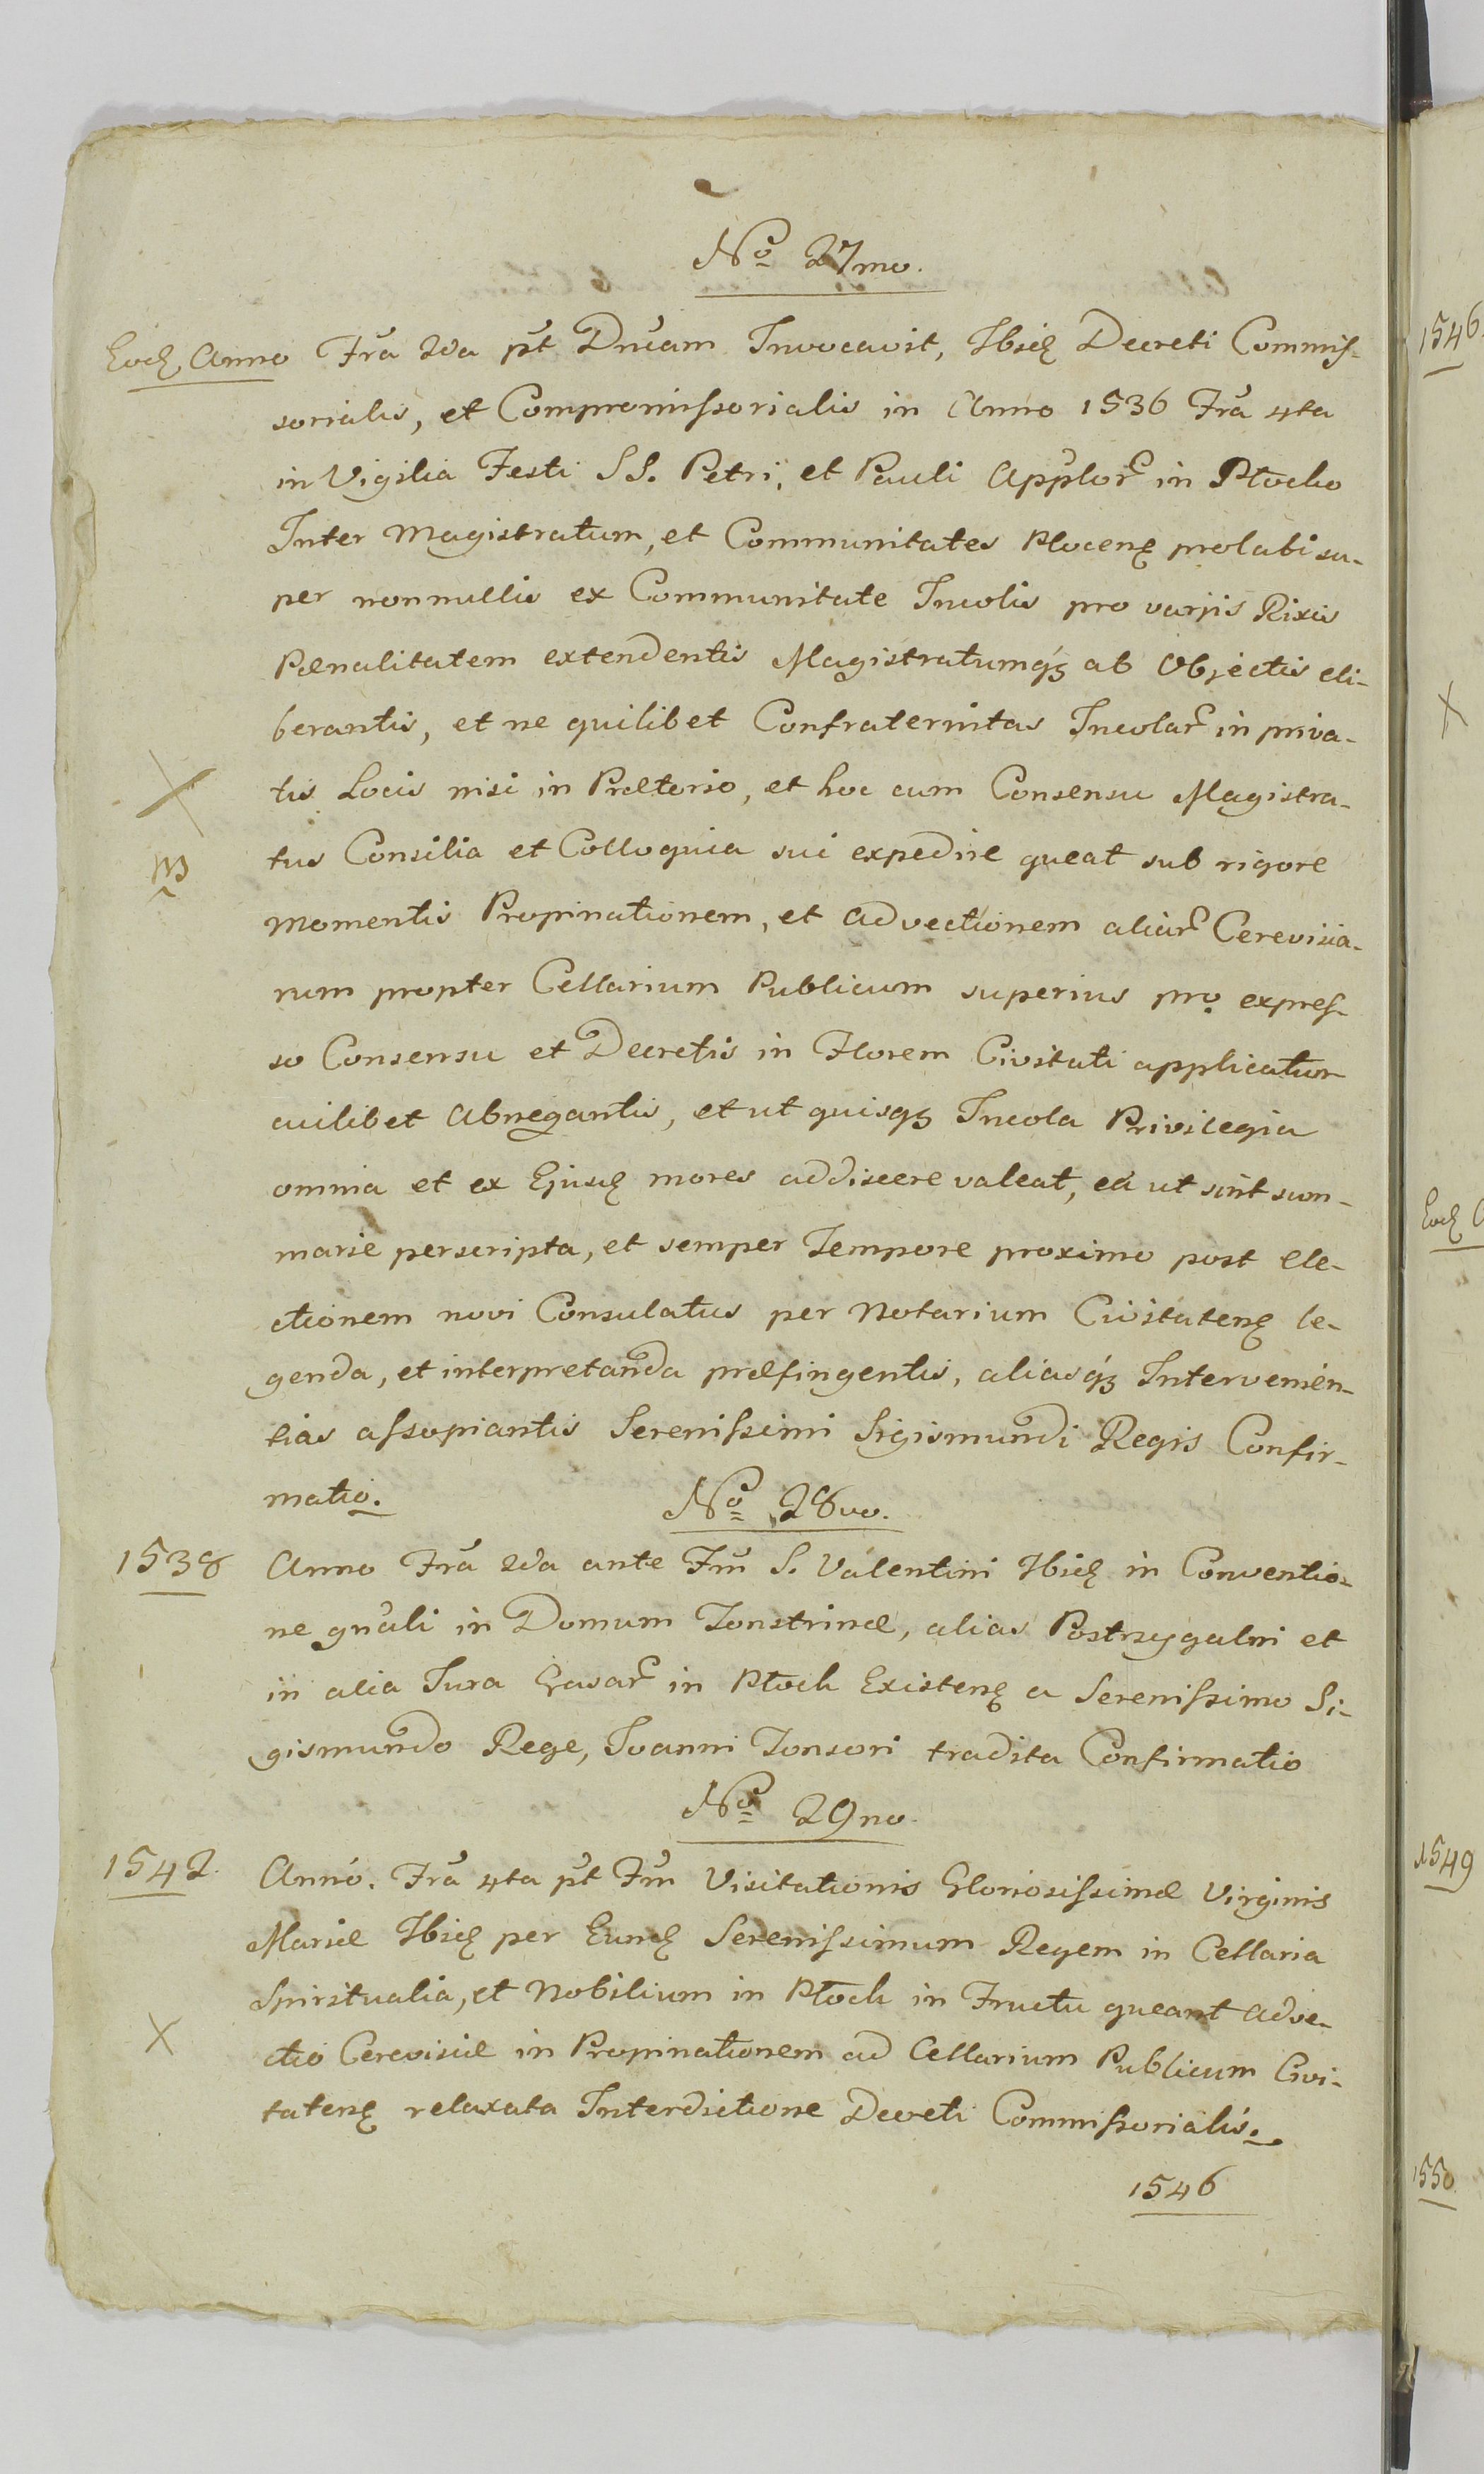 No 27mo.
Eod Anno Fra 2da pt Dnicam Invocavit, Ibid Decreti Commis-
sorialis, et Compromissorialis in Anno 1536 Fra 4ta
in Vigilia Festi SS. Petri, et Pauli Applor in Płocko
Inter Magistratum, et Communitates Plocen prolati su-
per nonnullis ex Communitate Incolis pro varijs Rixis
Pænalitatem extendentis Magistratumq3 ab Objectis eli-
berantis, et ne quilibet Confraternitas Incolar in priva-
tis Locis nisi in Prætorio, et hoc cum Consensu Magistra-
tus Consilia et Colloquia sui expedire queat sub rigore
momentis Propinationem, et advectionem aliar Cerevisia-
rum propter Cellarium Publicum superius pro expres-
so Consensu et Decretis in Florem Civitati applicatur
cuilibet abnegantis, et ut quisq3 Incola Privilegia
omnia et ex Ejusd mores addiscere valeat, ea ut sint sum-
marie perscripta, et semper Tempore proximo post Ele-
ctionem novi Consulatus per Notarium Civitaten le-
genda, et interpretanda præfingentis, aliasq3 Intervenien-
tias assopiantis Serenissimi Sigismundi Regis Confir-
matio.
No 28vo.
1538 Anno Fra 2da ante Fm S. Valentini Ibid in Conventio-
ne gnali in Domum Tonstrinæ, alias Postrzygalni et
in alia Jura in Płock Existen a Serenissimo Si-
gismundo Rege, Joanni Tonsori tradita Confirmatio
No 29no.
1542. Anno. Fra 4ta pt Fm Visitationis Gloriosissimæ Virginis
Mariæ Ibid per Eund Serenissimum Regem in Cellaria
Spiritualia, et Nobilium in Płock in Fructu queant adve-
ctio Cerevisiæ in Propinationem ad Cellarium Publicum Civi-
taten relaxata Interdictione Decreti Commissorialis.
1546
1546.
Eod
1549
1550.